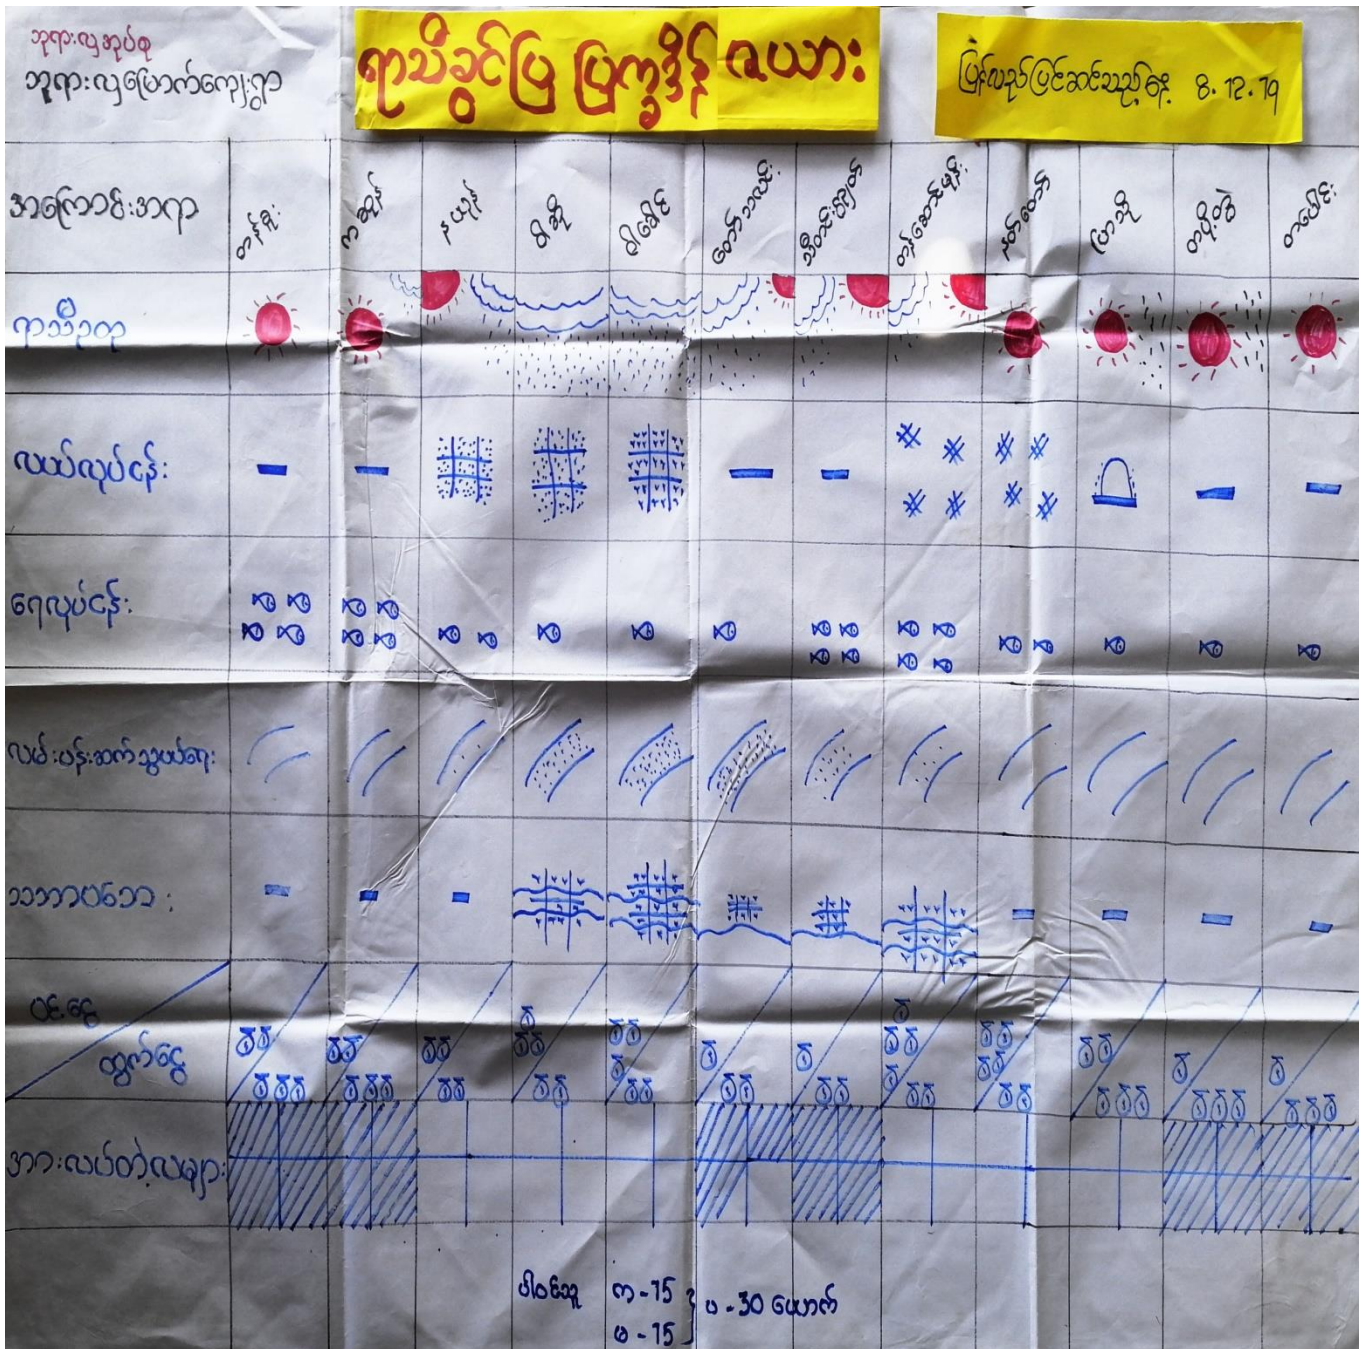 ဘုရားလှအုပ်စု
ဘုရားလှမြောက်ကျေးရွာ
ရာသီခွင်ပြ ပြက္ခဒိန် ဇယား
ပြန်လည်ပြင်ဆင်သည့်နေ့ 8.12.19
အကြောင်းအရာ
တန်ခူး
ကဆုန်
နယုန်
ဝါဆို
ဝါခေါင်
တော်သလင်း
သီတင်းကျွတ်
တန်ဆောင်မုန်း
နတ်တော်
ပြာသို
တပို့တွဲ
တပေါင်း
ရာသီဥတု
လယ်လုပ်ငန်း
ရေလုပ်ငန်း
လမ်းပန်းဆက်သွယ်ရေး
သဘာဝဘေး
ဝင်ငွေ
ထွက်ငွေ
အားလပ်တဲ့လများ
ပါဝင်သူ က - 15
မ - 15
ပ - 30 ယောက်